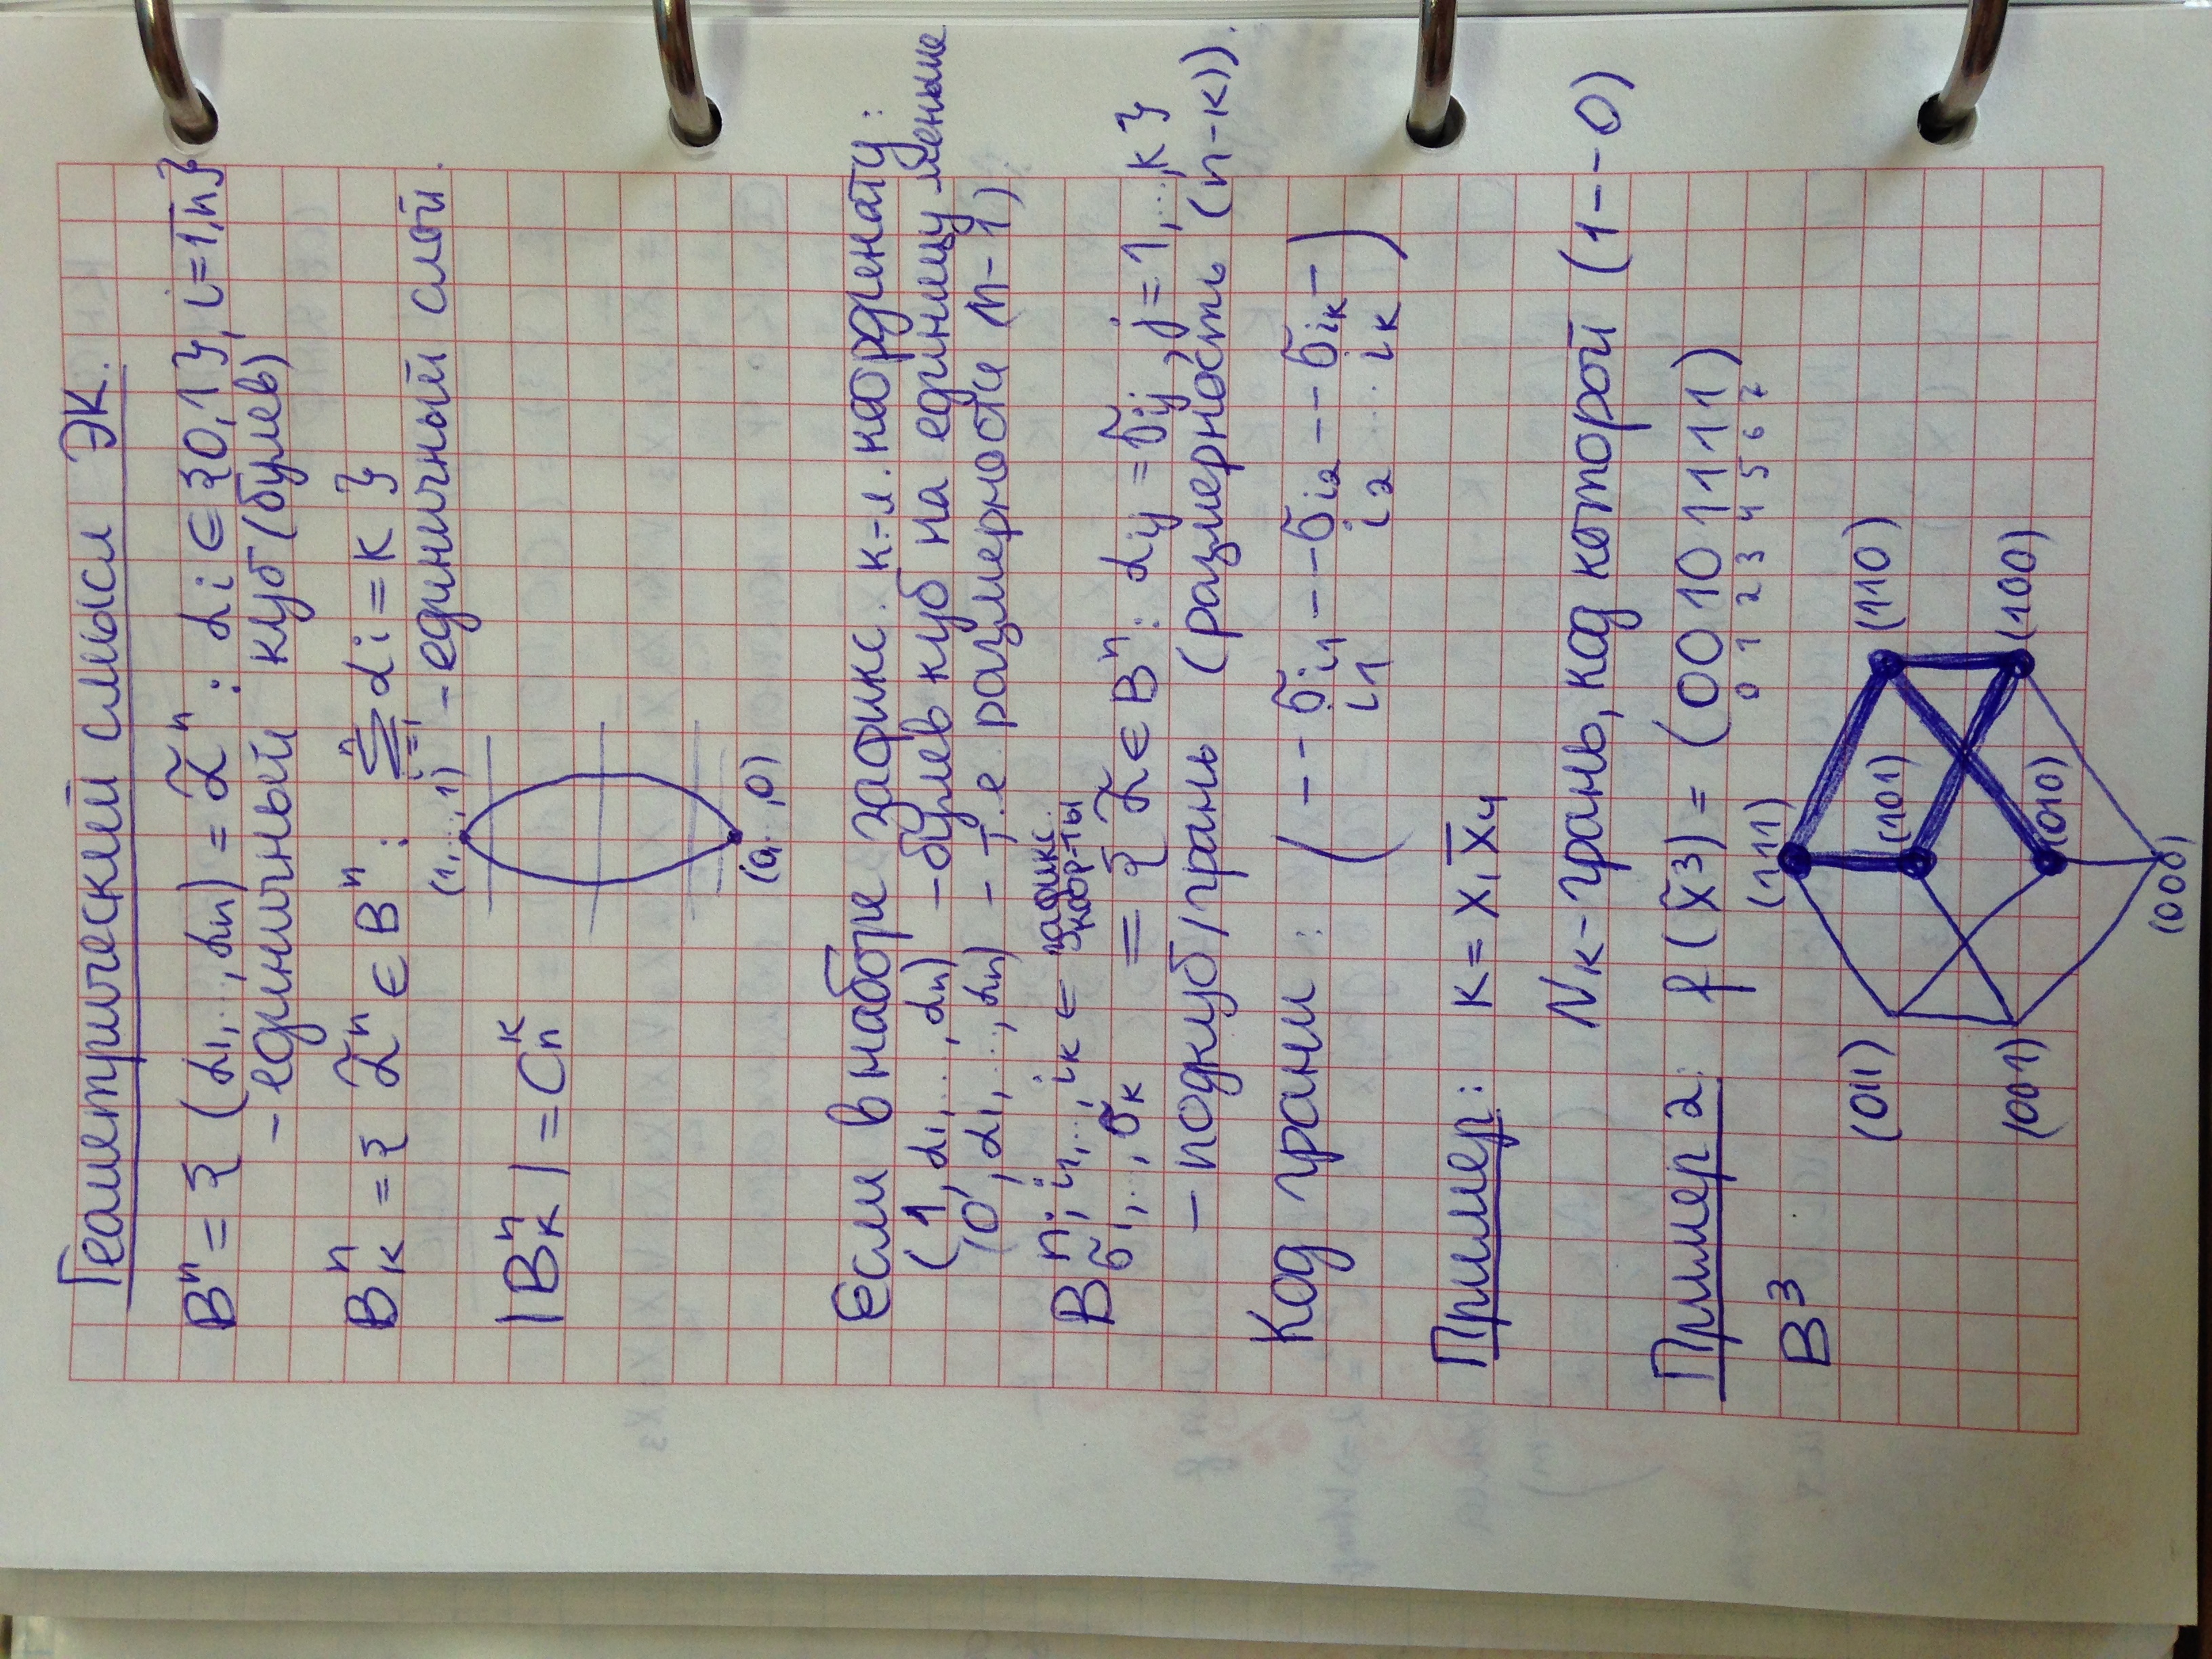 Геометрический смысл ЭК.
Bⁿ = { (α₁,...,αₙ) = α̃ⁿ : αᵢ ∈ {0,1}, i = 1,n̅}
- единичный куб (булев)
Bₖⁿ = { α̃ⁿ ∈ Bⁿ : Σᵢ₌₁ⁿ αᵢ = k } 
- единичный слой.
|Bₖⁿ| = Cₙᵏ
(1,...,1)
(0,...,0)
Если в наборе зафикс. к-л. координату:
(1,α₁,...,αₙ) - булев куб на единицу меньше
(0,α₁,...,αₙ) - т.е размерности n-1)
B ⁿ; ⁱ¹,...,ⁱᵏ ← зафикс. коор-ты
σ₁,...,σₖ = { α̃ ∈ Bⁿ : αᵢⱼ = σᵢⱼ, j = 1,...,k }
- подкуб/грань (размерность (n-k)).
Код грани: (---σᵢ₁---σᵢ₂---σᵢₖ-)
i₁ i₂ ... iₖ
Пример: K = x₁x̅₄
Nₖ - грань, код которой (1--0)
Пример 2: f(x̃³) = (0010 1111)
0 1 2 3 4 5 6 7
B³
(111)
(011) (101) (110)
(001) (010) (100)
(000)